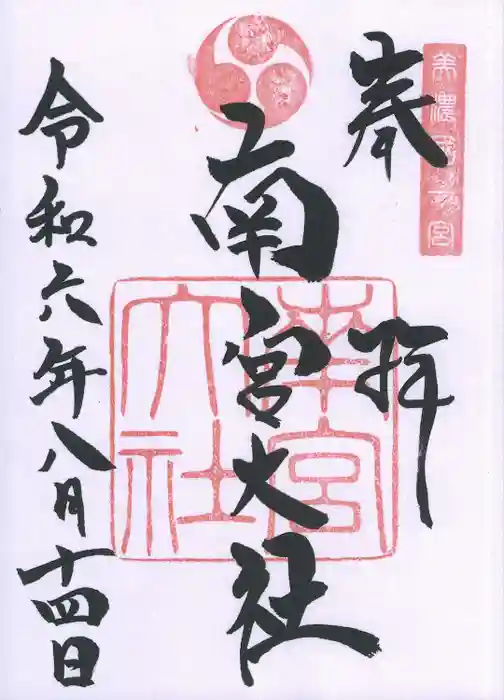 美濃國一宮
奉拝
南宮大社
南宮大社
令和六年八月十四日